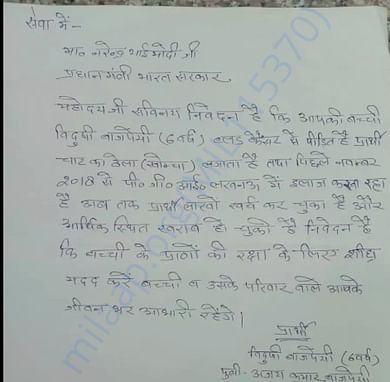 सेवा में -
मा० नरेन्द्र भाई मोदी जी
प्रधान मंत्री भारत सरकार
महोदय जी सविनय निवेदन है कि आपकी बच्ची
विदुषी बाजपेयी (6वर्ष) ब्लड कैंसर से पीड़ित है प्रार्थी
चाट का ठेला (खोन्चा) लगाता है तथा पिछले नवम्बर
2018 से पी० जी० आई० लखनऊ में इलाज करा रहा
है अब तक प्रार्थी लाखो खर्च कर चुका है और
आर्थिक स्थित खराब हो चुकी है निवेदन है
कि बच्ची के प्राणों की रक्षा के लिए शीघ्र
मदद करें बच्ची व उसके परिवार वाले आपके
जीवन भर आभारी रहेंगे।
प्रार्थी
विदुषी बाजपेयी (6वर्ष)
पुत्री - अजय कुमार बाजपेयी